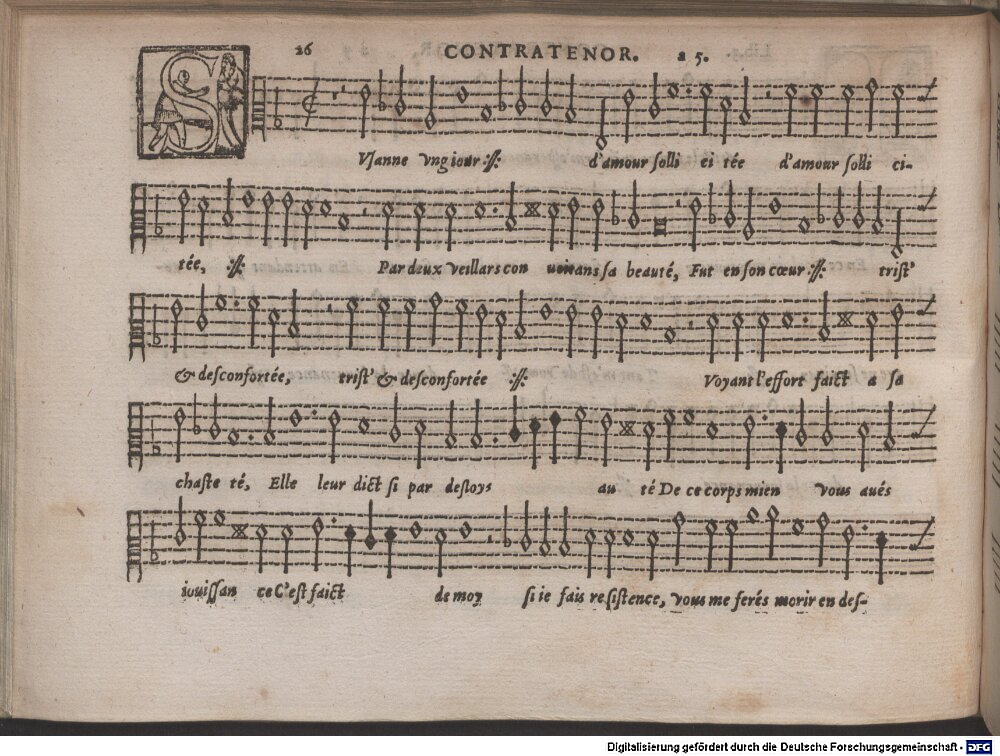 26 CONTRATENOR. a 5.
SVsanne vng iour :||: d'amour solli ci tée d'amour solli ci-
tée, :||: Par deux veillars con uoitans sa beauté, Fut en son cœur :||: trist'
& desconfortée, trist' & desconfortée :||: Voyant l'effort faict a sa
chaste té, Elle leur dict si par desloys au té De ce corps mien vous aués
iouissan ce C'est faict de moy si ie fais resistence, vous me ferés morir en des-
Digitalisierung gefördert durch die Deutsche Forschungsgemeinschaft - DFG